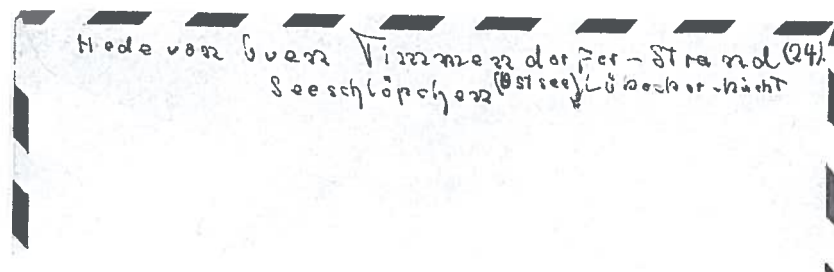 Hede von Guen Timmmendorfer-Strand (24).
Seeschlößchen (Ostsee) Lübecker-bucht